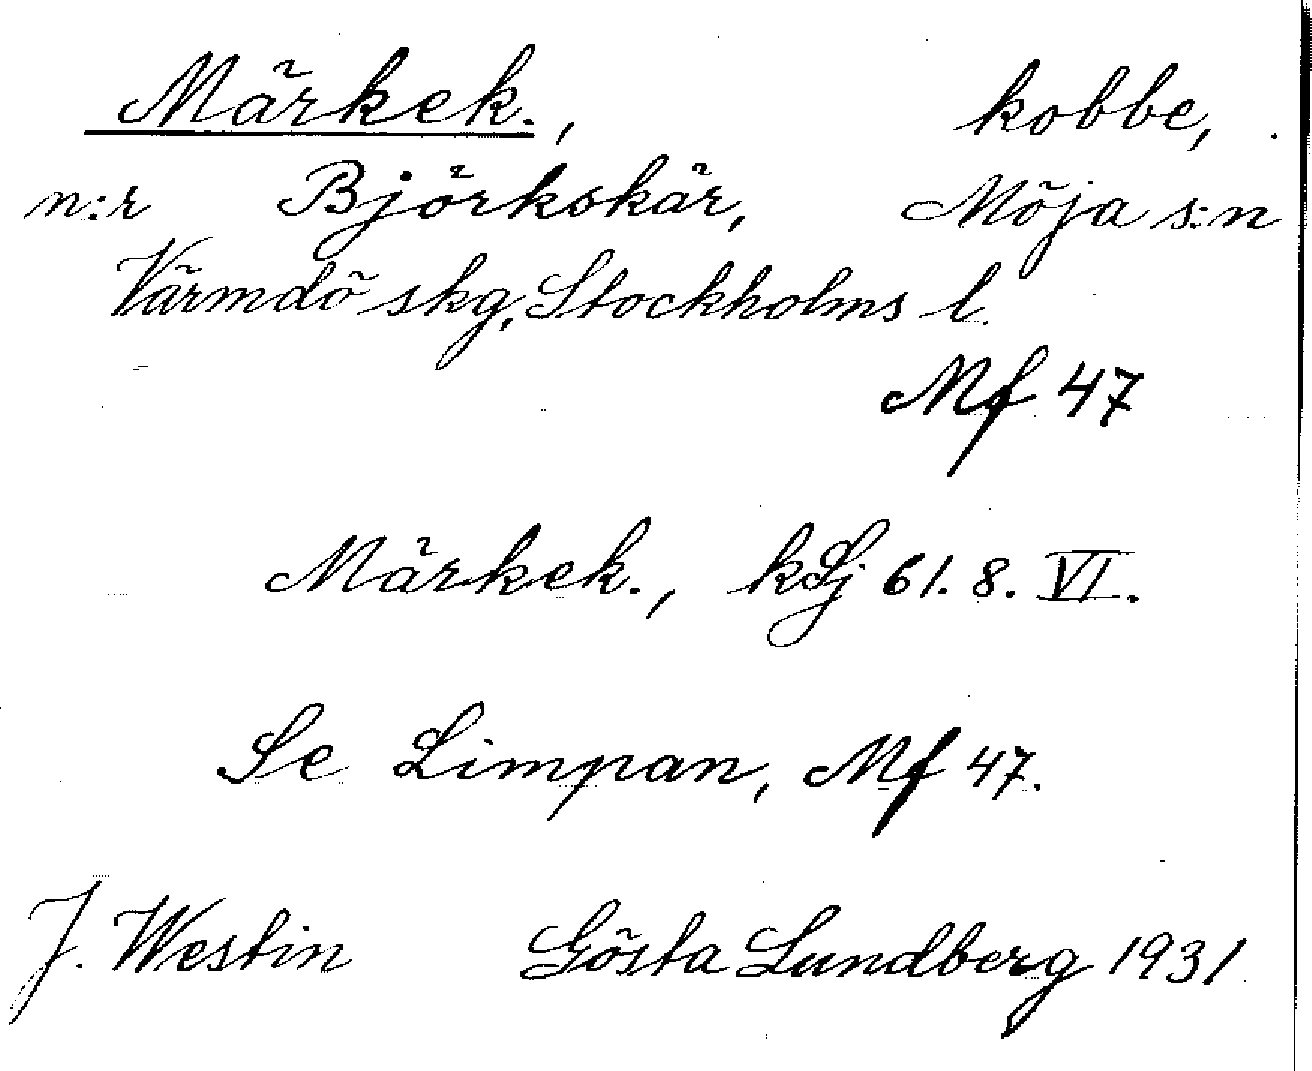 Märkek., kobbe,
n:r Björkskär, Möja s:n
Värmdö skg, Stockholms l.
Mf 47
Märkek., kLj 61. 8. VI.
Se Limpan, Mf 47.
J. Westin Gösta Lundberg 1931